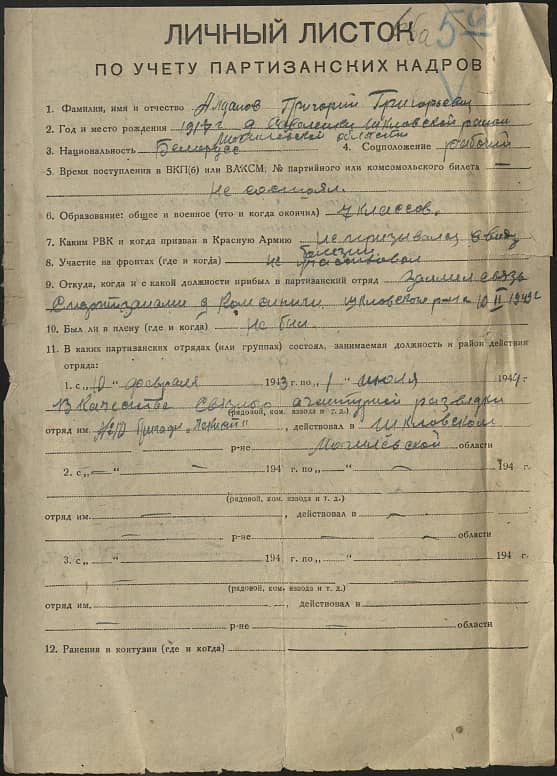 56
ЛИЧНЫЙ ЛИСТОК
ПО УЧЕТУ ПАРТИЗАНСКИХ КАДРОВ
1. Фамилия, имя и отчество Григорий Григорьевич
2. Год и место рождения 1917 г. д. Шкловской район
Могилевской области
3. Национальность Белорусс 4. Соцположение рабочий
5. Время поступления в ВКП(б) или ВЛКСМ, № партийного или комсомольского билета —
Не состоял.
6. Образование: общее и военное (что и когда окончил) классов.
7. Каким РВК и когда призван в Красную Армию Не призывался в виду
болезни
8. Участие на фронтах (где и когда) не участвовал
9. Откуда, когда и с какой должности прибыл в партизанский отряд связь
с партизанами Шкловского р-на 10 II 1943 г
10. Был ли в плену (где и когда) Не был.
11. В каких партизанских отрядах (или группах) состоял, занимаемая должность и район действия
отряда:
1. с „10“ февраля 1943 г. по „1“ июля 1944 г.
В качестве связного агентурной разведки
(рядовой, ком. взвода и т. д.)
отряд им. бригады , действовал в Шкловском
р-не Могилёвской области
2. с „—“ 194 г. по „—“ 194 г.
(рядовой, ком. взвода и т. д.)
отряд им. — , действовал в —
— р-не — области
3. с „—“ 194 г. по „—“ — 194 г.
(рядовой, ком. взвода и т. д.)
отряд им. — , действовал в —
— р-не — области
12. Ранения и контузии (где и когда) —